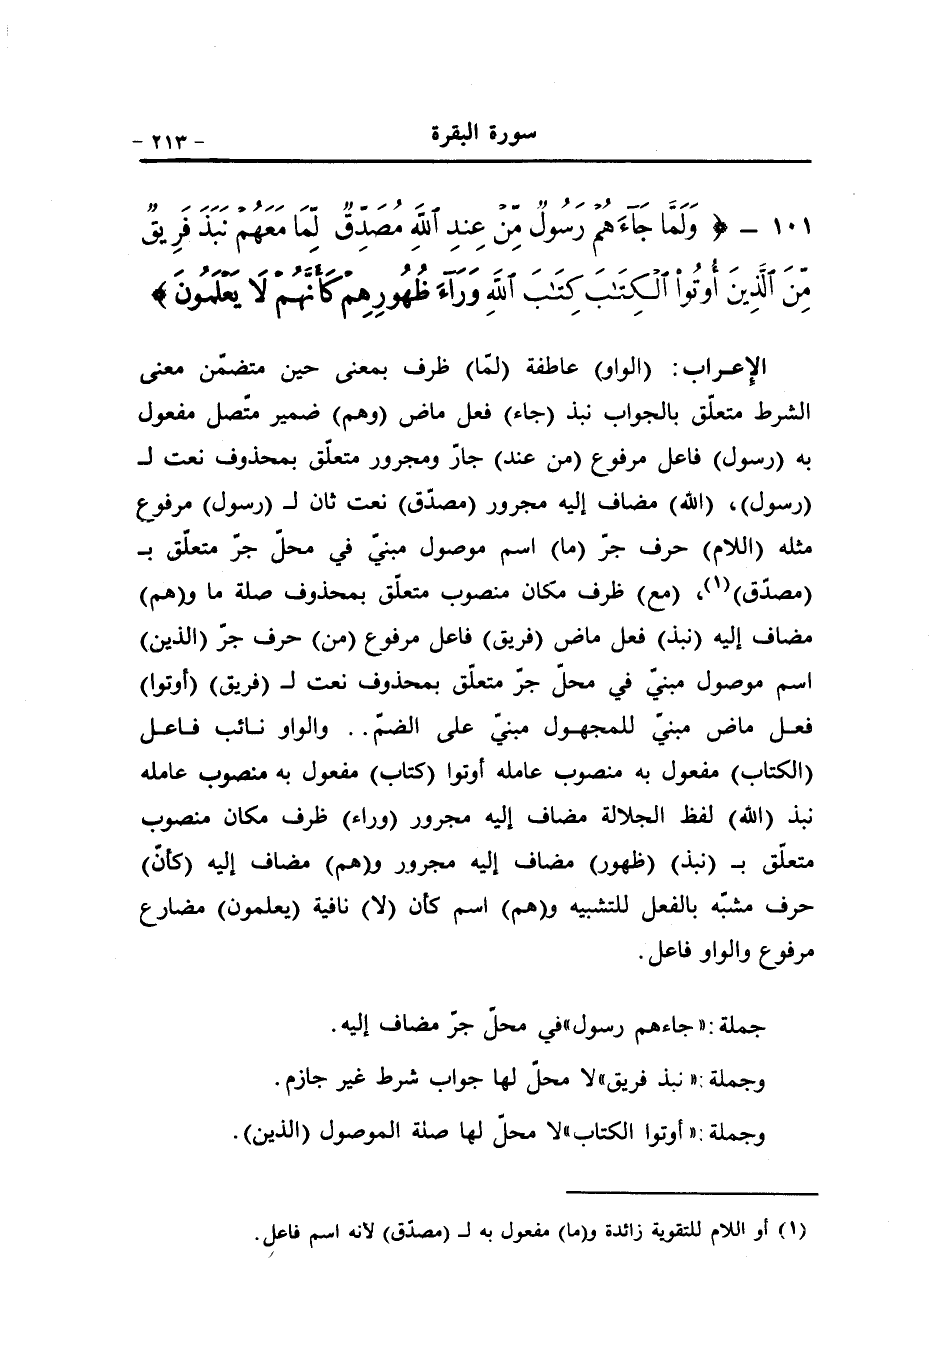 سورة البقرة
- ٢١٣ -
١٠١ - ﴿ وَلَمَّا جَآءَهُمْ رَسُولٌ مِّنْ عِندِ ٱللَّهِ مُصَدِّقٌ لِّمَا مَعَهُمْ نَبَذَ فَرِيقٌ
مِّنَ ٱلَّذِينَ أُوتُوا۟ ٱلْكِتَـٰبَ كِتَـٰبَ ٱللَّهِ وَرَآءَ ظُهُورِهِمْ كَأَنَّهُمْ لَا يَعْلَمُونَ ﴾
الإعـراب: (الواو) عاطفة (لمّا) ظرف بمعنى حين متضمّن معنى
الشرط متعلّق بالجواب نبذ (جاء) فعل ماض (وهم) ضمير متّصل مفعول
به (رسول) فاعل مرفوع (من عند) جارّ ومجرور متعلّق بمحذوف نعت لـ
(رسول)، (الله) مضاف إليه مجرور (مصدّق) نعت ثان لـ (رسول) مرفوع
مثله (اللام) حرف جرّ (ما) اسم موصول مبنيّ في محلّ جرّ متعلّق بـ
(مصدّق)(١)، (مع) ظرف مكان منصوب متعلّق بمحذوف صلة ما و(هم)
مضاف إليه (نبذ) فعل ماض (فريق) فاعل مرفوع (من) حرف جرّ (الذين)
اسم موصول مبنيّ في محلّ جرّ متعلّق بمحذوف نعت لـ (فريق) (أوتوا)
فعـل ماض مبنيّ للمجهـول مبنيّ على الضمّ.. والواو نـائب فـاعـل
(الكتاب) مفعول به منصوب عامله أوتوا (كتاب) مفعول به منصوب عامله
نبذ (الله) لفظ الجلالة مضاف إليه مجرور (وراء) ظرف مكان منصوب
متعلّق بـ (نبذ) (ظهور) مضاف إليه مجرور و(هم) مضاف إليه (كأنّ)
حرف مشبّه بالفعل للتشبيه و(هم) اسم كأن (لا) نافية (يعلمون) مضارع
مرفوع والواو فاعل.
جملة :«جاءهم رسول»في محلّ جرّ مضاف إليه.
وجملة :« نبذ فريق»لا محلّ لها جواب شرط غير جازم.
وجملة :« أوتوا الكتاب»لا محلّ لها صلة الموصول (الذين).
(١) أو اللام للتقوية زائدة و(ما) مفعول به لـ (مصدّق) لأنه اسم فاعل.